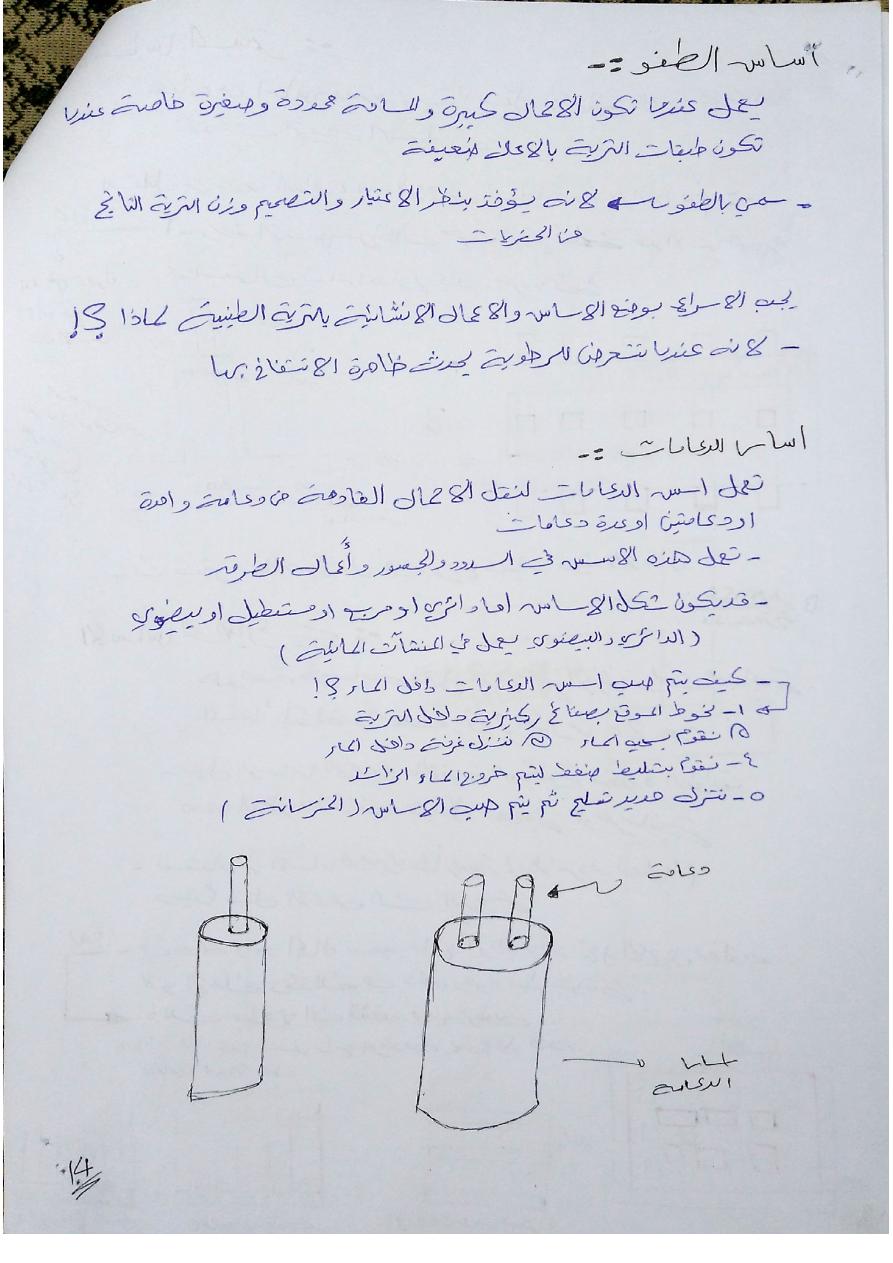 أساس الطفو :-
يعمل عندما تكون الاحمال كبيرة والمساحة محدودة وصغيرة خاصة عندما
تكون طبقات التربة بالاعلى ضعيفة
- سمي بالطفو لانه يؤخذ بنظر الاعتبار والتصميم وزن التربة الناتج
من الحفريات
يجب الاسراع بوضع الاساس والاعمال الانشائية بالتربة الطينية لماذا ؟!
- لانه عندما تتعرض للرطوبة يحدث ظاهرة الانتفاخ بها
اساس الدعامات :-
تعمل اسس الدعامات لنقل الاحمال القادمة من دعامة واحدة
او دعامتين او عدة دعامات
- تعمل هذه الاسس في السدود والجسور وأعمال الطرق
- قد يكون شكل الاساس اما دائري او مربع او مستطيل او بيضوي
(الدائري والبيضوي يعمل في المنشآت المائية)
- كيف يتم صب اسس الدعامات داخل الماء ؟!
١- نحوط الموقع بصفائح ركيزية داخل التربة
٢) نقوم بسحب الماء ٣) تنزل غرفة داخل الماء
٤- نقوم بتسليط ضغط ليتم خروج الماء الزائد
٥- نتنزل حديد تسليح ثم يتم صب الاساس (الخرسانة)
دعامة
اساس
الدعامة
14